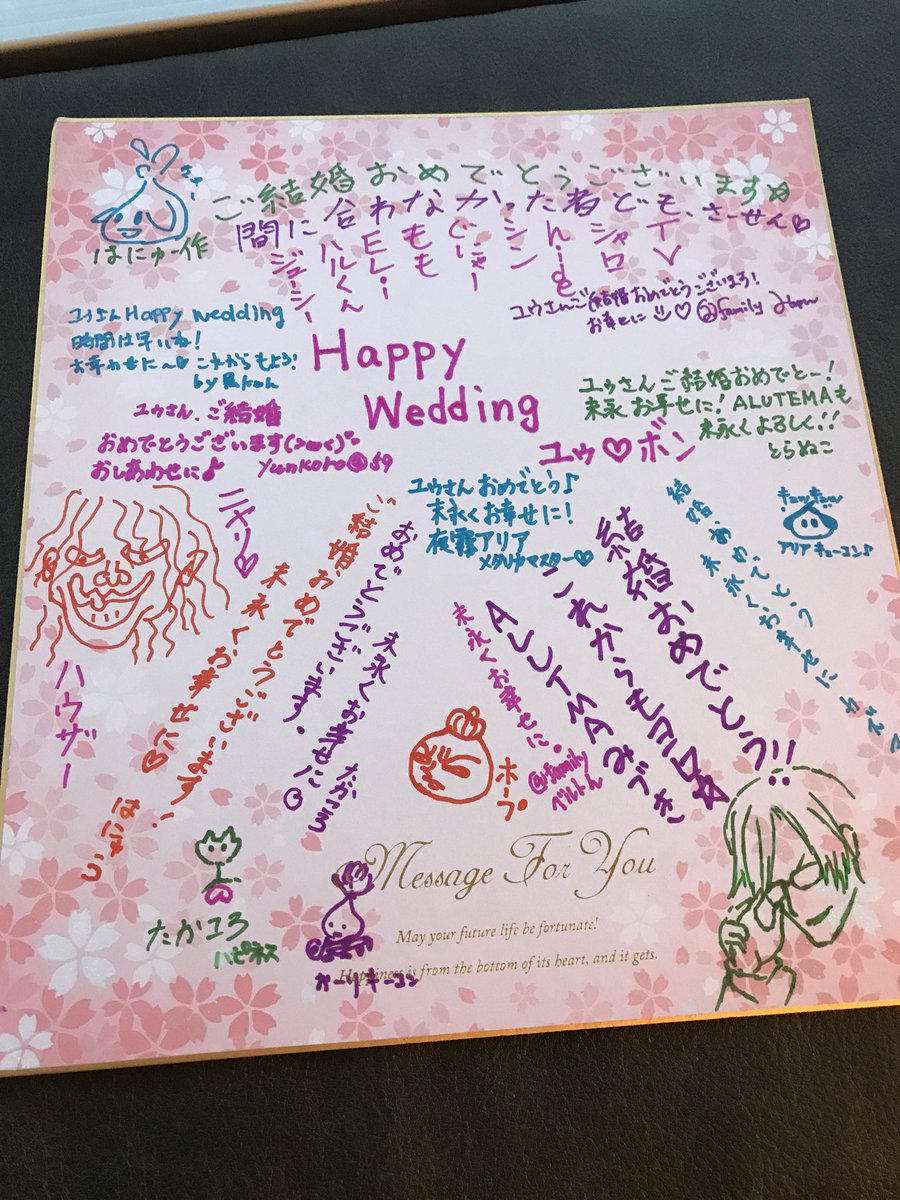 はにゅー作
ご結婚おめでとうございます
間に合わなかった者ども、さーせん♡
TV
シャロ
h.ide
シン
どにゃー
もも
ELLー
ハルくん
ジューシー
ユウさんご結婚おめでとうございまろ!
お幸せに ♡ @family
ユウさん Happy wedding
時間は早いね!
お幸わせに〜♡ これからもよろ!
Happy
Wedding
ユゥ♡ボン
ユゥさん、ご結婚
おめでとうございます(>ω<)
おしあわせに♪ yunkoro@59
ユゥさんご結婚おめでとー!
末永お幸せに! ALUTEMAも
末永くよろしく!!
とらぬこ
ユウさんおめでとう♪
末永くお幸せに!
夜霧アリア
メタリカマスター♡
キュッキュッ
アリアキューコン♪
ニヤリ♡
ハウザー
ご結婚、おめでとうございます!
末永くお幸せに♡
おめでとうございます。
末永くお幸せに
たかころ
末永くお幸せに。
@family
ベルトん
ホープ
結婚おめでとう!!
これからもヨロ☆
ALUTEMAみづき
結婚おめでとう
末永くお幸せに
たかコろ
ハピネス
Message For You
May your future life be fortunate!
Happiness is from the bottom of its heart, and it gets.